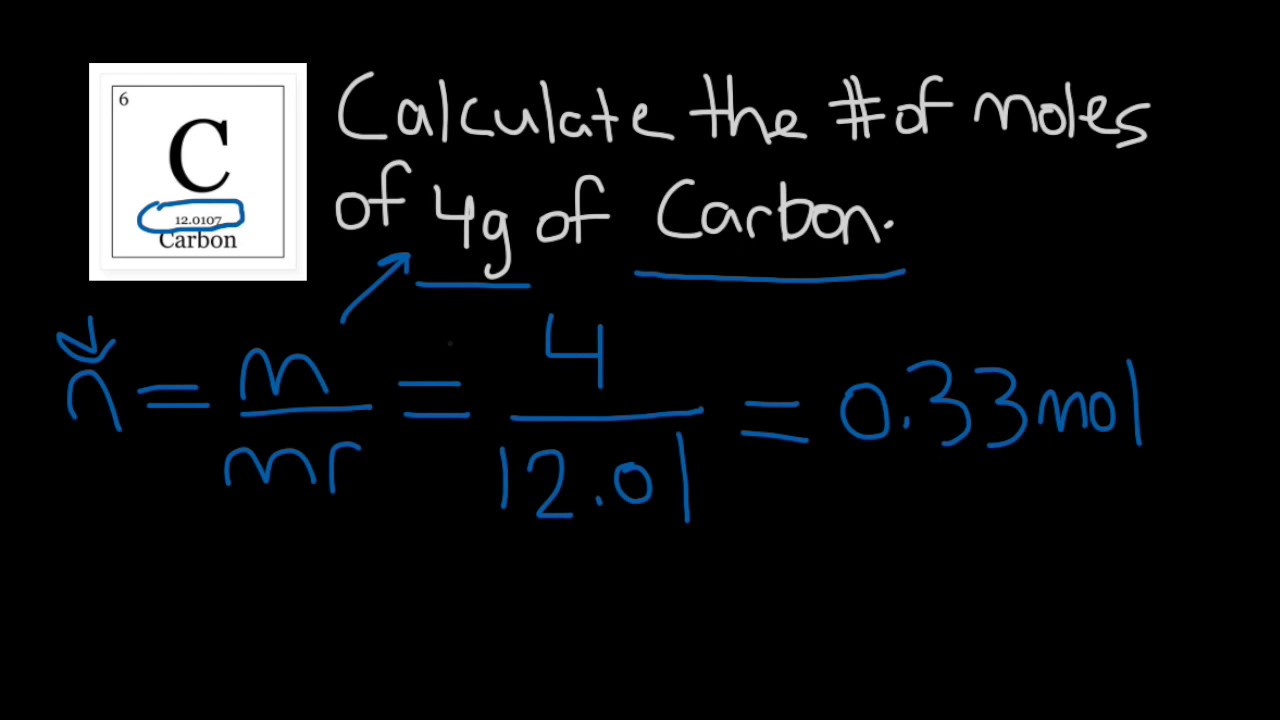 6
C
12.0107
Carbon
Calculate the # of moles
of 4g of Carbon.
n = m/mr = 4/12.01 = 0.33mol